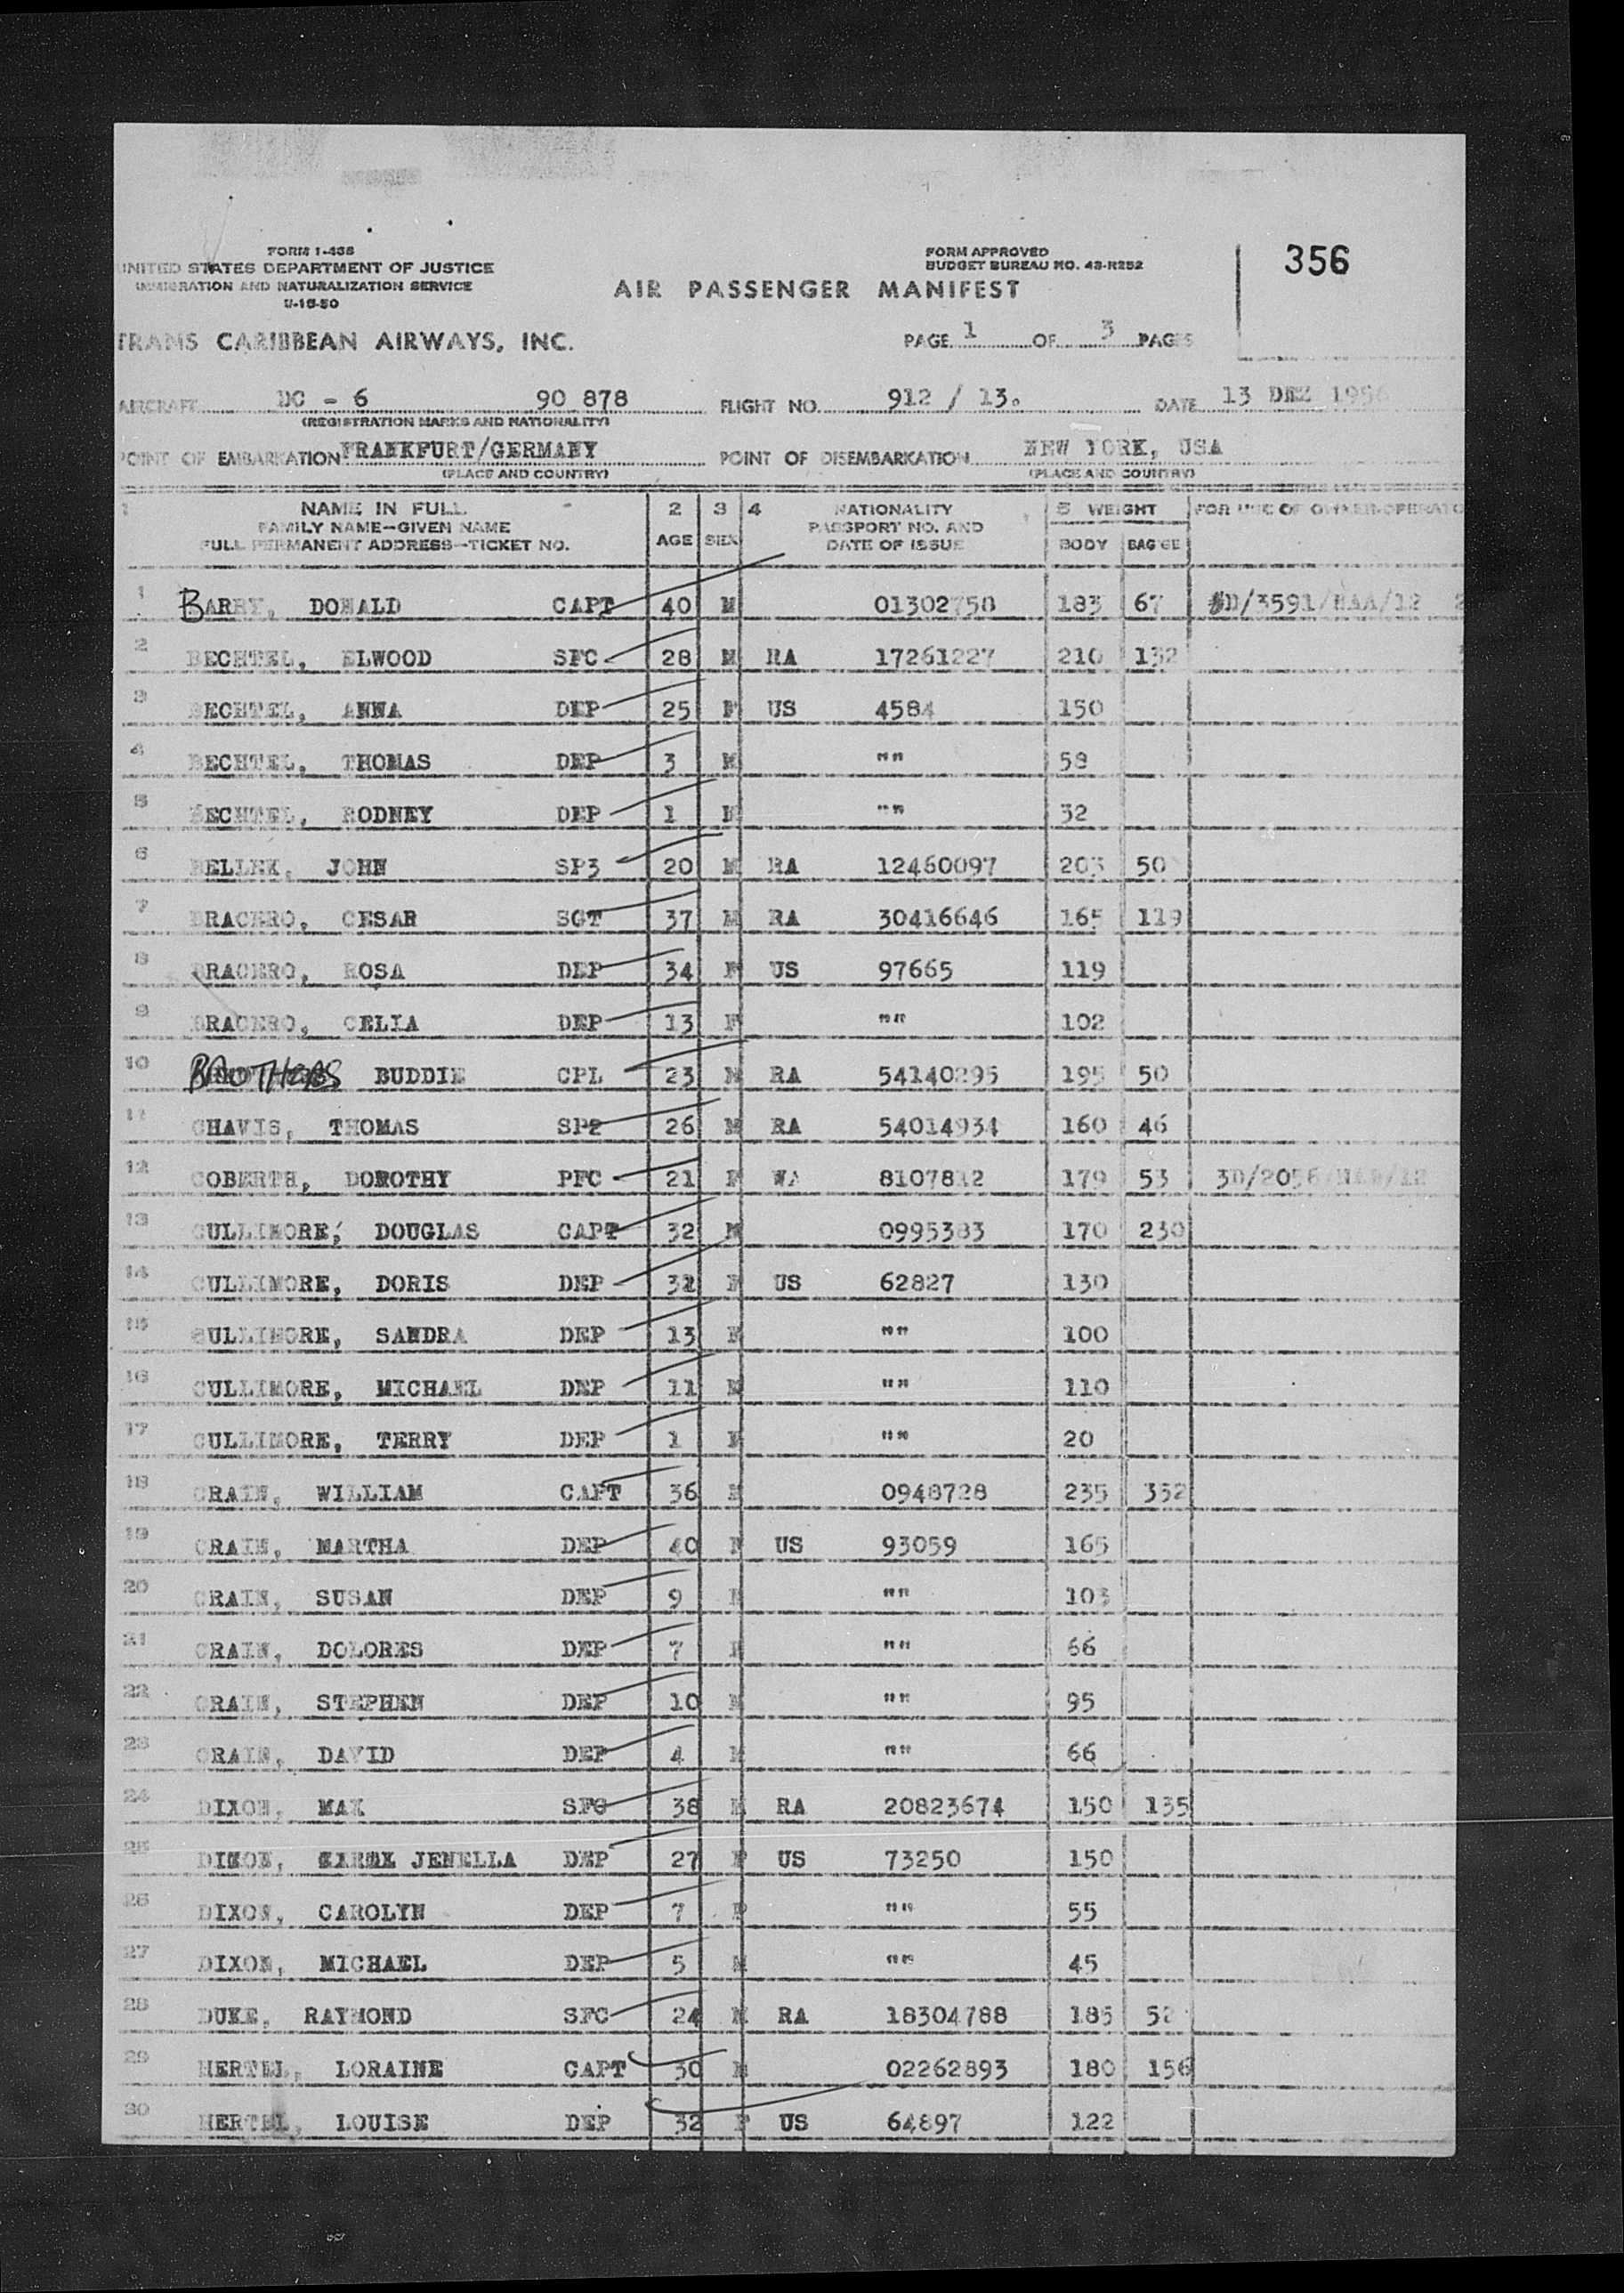 FORM I-466
UNITED STATES DEPARTMENT OF JUSTICE
IMMIGRATION AND NATURALIZATION SERVICE
FORM APPROVED
BUDGET BUREAU NO. 43-R252
356
AIR PASSENGER MANIFEST
TRANS CARIBBEAN AIRWAYS, INC.
PAGE 1 OF 3 PAGES
AIRCRAFT DC - 6 90 878 FLIGHT NO. 912 / 13. DATE 13 DEZ 1956
(REGISTRATION MARKS AND NATIONALITY)
POINT OF EMBARKATION FRANKFURT/GERMANY POINT OF DISEMBARKATION NEW YORK, USA
(PLACE AND COUNTRY) (PLACE AND COUNTRY)
1 NAME IN FULL 2 3 4 NATIONALITY 5 WEIGHT FOR USE OF OWNER-OPERATO
FAMILY NAME—GIVEN NAME PASSPORT NO. AND
FULL PERMANENT ADDRESS—TICKET NO. AGE SEX DATE OF ISSUE BODY BAG'GE
1 BARRY, DONALD CAPT 40 M 01302758 183 67 3D/3591/HAA/12
2 BECHTEL, ELWOOD SFC 28 M RA 17261227 210 132
3 BECHTEL, ANNA DEP 25 F US 4584 150
4 BECHTEL, THOMAS DEP 3 M "" 59
5 BECHTEL, RODNEY DEP 1 M "" 32
6 BELLEK, JOHN SP3 20 M RA 12460097 203 50
7 BRACERO, CESAR SGT 37 M RA 30416646 165 119
8 BRACERO, ROSA DEP 34 F US 97665 119
9 BRACERO, CELIA DEP 13 F "" 102
10 BROTHERS BUDDIE CPL 23 M RA 54140295 195 50
11 CHAVIS, THOMAS SP2 26 M RA 54014934 160 46
12 COBERTH, DOROTHY PFC 21 F WA 8107812 179 53 3D/2056
13 CULLIMORE, DOUGLAS CAPT 32 M 0995383 170 230
14 CULLIMORE, DORIS DEP 32 F US 62827 130
15 CULLIMORE, SANDRA DEP 13 F "" 100
16 CULLIMORE, MICHAEL DEP 11 M "" 110
17 CULLIMORE, TERRY DEP 1 "" 20
18 CRAIN, WILLIAM CAPT 36 M 0948728 235 352
19 CRAIN, MARTHA DEP 40 F US 93059 165
20 CRAIN, SUSAN DEP 9 F "" 103
21 CRAIN, DOLORES DEP 7 F "" 66
22 CRAIN, STEPHEN DEP 10 M "" 95
23 CRAIN, DAVID DEP 4 M "" 66
24 DIXON, MAX SFC 38 M RA 20823674 150 135
25 DIXON, JENELLA DEP 27 F US 73250 150
26 DIXON, CAROLYN DEP 7 F "" 55
27 DIXON, MICHAEL DEP 5 M "" 45
28 DUKE, RAYMOND SFC 24 M RA 18304788 185 52
29 HERTEL, LORAINE CAPT 30 M 02262893 180 156
30 HERTEL, LOUISE DEP 32 F US 64897 122